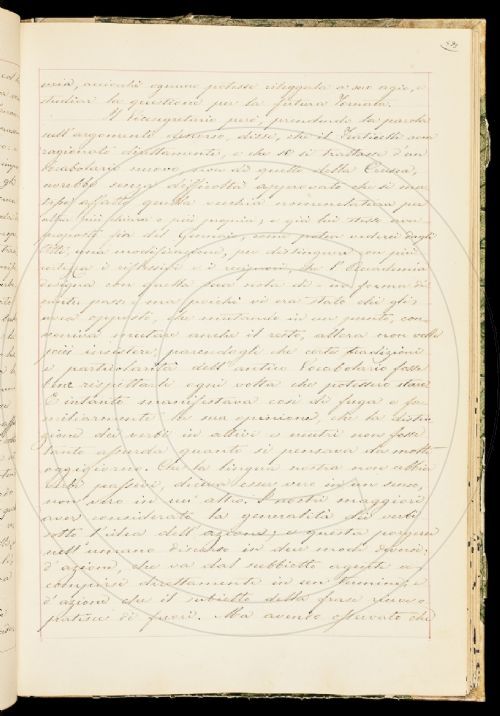 seria, acciocchè ognuno potesse rileggerla a suo agio, e
studiar la questione per la futura Tornata.
Il Vicesegretario però, prendendo la parola
sull'argomento discorso, disse, che il Fanticelli avea
ragionato dirittamente, e che se si trattasse d'un
vocabolario nuovo, non di quello della Crusca,
avrebbe senza difficoltà approvato che si mu-
tasse affatto quella vecchia nomenclatura per
altra più chiara e più propria; e già lui stesso aver
proposto fin del Gennaio, come potea vedersi dagli
Atti, una modificazione, per distinguere con più
certezza i riflessivi e i reciproci, che l'Accademia
designa con quella sua nota di in forma di
neutr. pass.: ma poichè vi era stato chi gli
aveva opposto, che mutando in un punto, con-
veniva mutare anche il resto, allora non volle
più insistere, parendogli che certe tradizioni
e particolarità dell'antico Vocabolario fosse
bene rispettarle ogni volta che potessero stare.
E intanto manifestava così di fuga e fa-
miliarmente la sua opinione, che la distin-
zione dei verbi in attivi e neutri non fosse
tanto assurda quanto si pensava da molti
oggigiorno. Che la lingua nostra non abbia
verbi passivi, diceva esser vero in un senso,
non vero in un altro. I nostri maggiori
aver considerato la generalità dei verbi
sotto l'idea dell'azione; e questa porgersi
nell'umano discorso in due modi diversi:
d'azione, che va dal subbietto agente a
compiersi direttamente in un termine, e
d'azione che il subietto della frase riceve o
patisce di fuori. Ma avendo osservato che